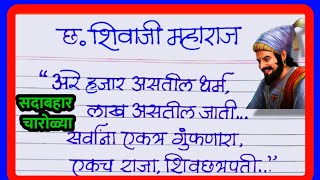 छ. शिवाजी महाराज
"अरे हजार असतील धर्म,
लाख असतील जाती...
सर्वांना एकत्र गुंफणारा,
एकच राजा, शिवछत्रपती..."
सदाबहार
चारोळ्या